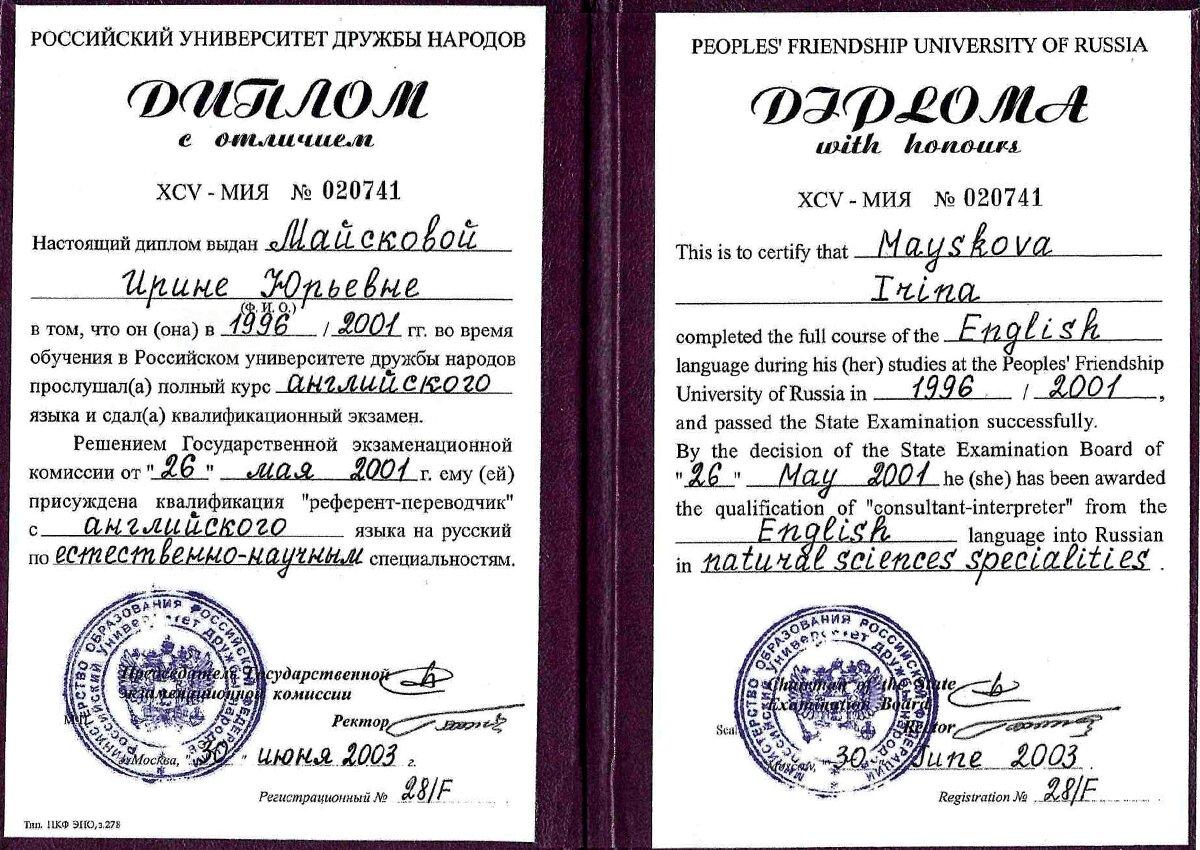 РОССИЙСКИЙ УНИВЕРСИТЕТ ДРУЖБЫ НАРОДОВ
ДИПЛОМ
с отличием
XCV - МИЯ № 020741
Настоящий диплом выдан Майсковой
Ирине Юрьевне
(Ф. И. О.)
в том, что он (она) в 1996 / 2001 гг. во время
обучения в Российском университете дружбы народов
прослушал(а) полный курс английского
языка и сдал(а) квалификационный экзамен.
Решением Государственной экзаменационной
комиссии от "26" мая 2001 г. ему (ей)
присуждена квалификация "референт-переводчик"
с английского языка на русский
по естественно-научным специальностям.
Председатель Государственной
экзаменационной комиссии
Ректор
М.П.
г.Москва, "30" июня 2003 г.
Регистрационный № 28/F
Тип. ПКФ ЭПО, з.278
МИНИСТЕРСТВО ОБРАЗОВАНИЯ РОССИЙСКОЙ ФЕДЕРАЦИИ
Российский Университет дружбы народов
PEOPLES' FRIENDSHIP UNIVERSITY OF RUSSIA
DIPLOMA
with honours
XCV - МИЯ № 020741
This is to certify that Mayskova
Irina
completed the full course of the English
language during his (her) studies at the Peoples' Friendship
University of Russia in 1996 / 2001,
and passed the State Examination successfully.
By the decision of the State Examination Board of
"26" May 2001 he (she) has been awarded
the qualification of "consultant-interpreter" from the
English language into Russian
in natural sciences specialities.
Chairman of the State
Examination Board
Rector
Seal
Moscow, 30 June 2003
Registration № 28/F
МИНИСТЕРСТВО ОБРАЗОВАНИЯ РОССИЙСКОЙ ФЕДЕРАЦИИ
Российский Университет дружбы народов